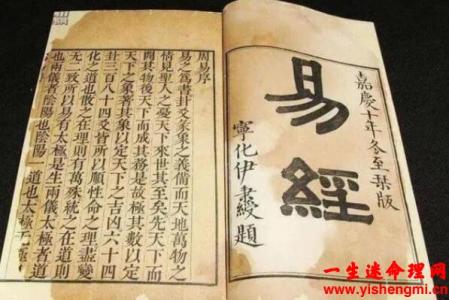 嘉慶十年冬至栞版
易經
寧化伊秉綬題
周易序
易之為書卦爻彖象之義備而天地萬物之
情見聖人之憂天下來世其至矣先天下而
開其物後天下而成其務是故極其數以定
天下之象著其象以定天下之吉凶六十四
卦三百八十四爻皆所以順性命之理盡變
化之道也散之在理則有萬殊統之在道則
无二致所以易有太極是生兩儀太極者道
也兩儀者陰陽也陰陽一道也太極无極
一生迷命理网
www.yishengmi.cn